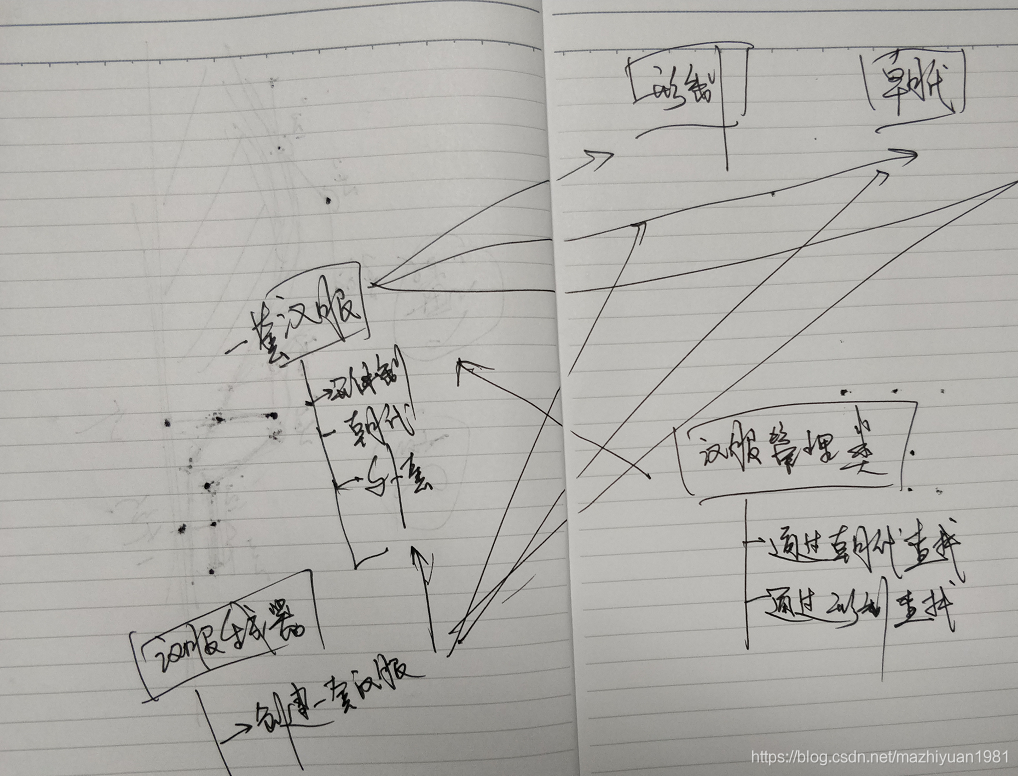 形制
朝代
一套汉服
朝代
套
汉服管理类
通过朝代查找
通过形制查找
汉服生成器
创建一套汉服
https://blog.csdn.net/mazhiyuan1981